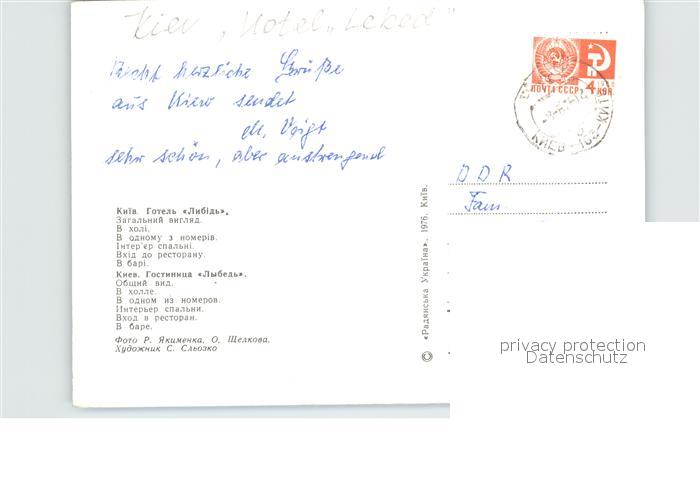 Kiev, Hotel "Lebed"
Recht herzliche Grüße
aus Kiew sendet
M. Voigt
sehr schön, aber anstrengend
ПОЧТА СССР
4 КОП
КИЕВ
DDR
Fam.
Київ. Готель «Либідь».
Загальний вигляд.
В холі.
В одному з номерів.
Інтер'єр спальні.
Вхід до ресторану.
В барі.
Киев. Гостиница «Лыбедь».
Общий вид.
В холле.
В одном из номеров.
Интерьер спальни.
Вход в ресторан.
В баре.
Фото Р. Якименка, О. Щелкова.
Художник С. Сльозко
© «Радянська Україна», 1976. Київ.
privacy protection
Datenschutz